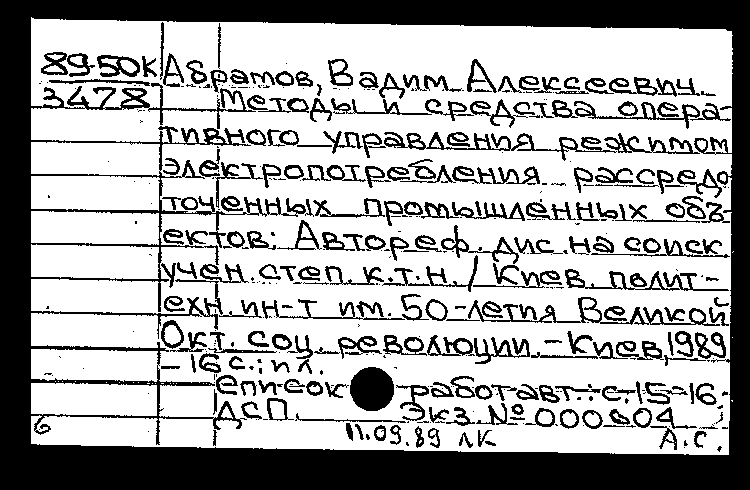 89-50К Абрамов, Вадим Алексеевич.
3478 Методы и средства опера-
тивного управления режимом
электропотребления рассредо
точенных промышленных объ-
ектов: Автореф. дис. на соиск.
учен. степ. к.т.н. / Киев. полит-
ехн. ин-т им. 50-летия Великой
Окт. соц. революции. - Киев, 1989
- 16 с.: ил.
Список работ авт.: с. 15-16.
ДСП. Экз. № 000004
6 11.09.89 ЛК А.С.